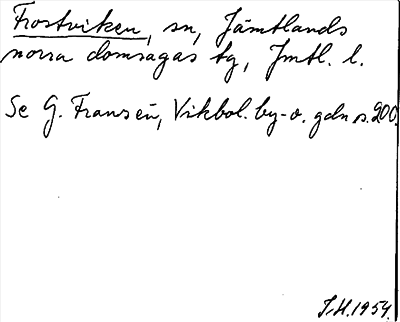 Frostviken, sn, Jämtlands
norra domsagas tg, Jmtl. l.
Se G. Franzén, Vikbol. by- o. gdn s. 200.
J.H. 1954.